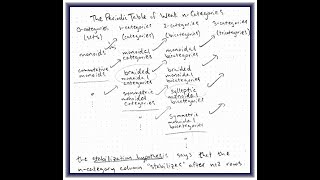 The Periodic Table of Weak n-Categories
0-categories 1-categories 2-categories 3-categories
(sets) (categories) (bicategories) (tricategories)
monoids monoidal categories monoidal bicategories
commutative monoids braided monoidal categories braided monoidal bicategories
" symmetric monoidal categories sylleptic monoidal bicategories
" symmetric monoidal bicategories
"
the stabilization hypothesis says that the
n-category column "stabilizes" after n+2 rows